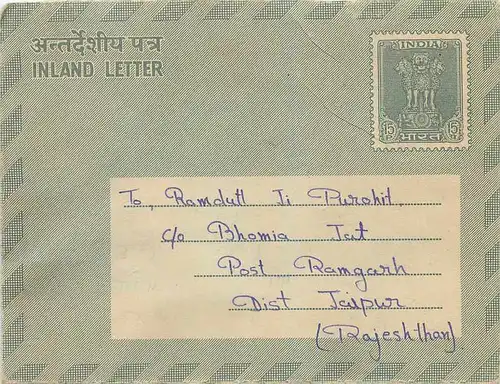 अन्तर्देशीय पत्र
INLAND LETTER
INDIA
15 15
भारत
To, Ramdutt Ji Purohit.
c/o Bhomia Jat
Post Ramgarh
Dist Jaipur
(Rajeshthan)